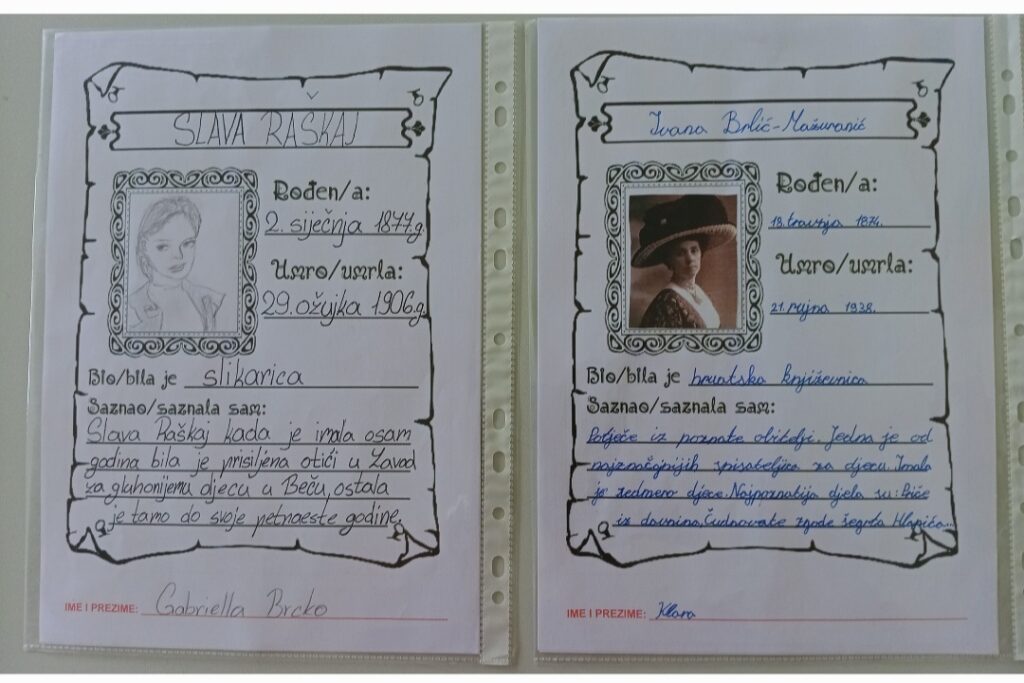 SLAVA RAŠKAJ
Rođen/a:
2. siječnja 1877.g.
Umro/umrla:
29. ožujka 1906.g.
Bio/bila je slikarica
Saznao/saznala sam:
Slava Raškaj kada je imala osam
godina bila je prisiljena otići u Zavod
za gluhonijemu djecu u Beču, ostala
je tamo do svoje petnaeste godine.
IME I PREZIME: Gabriella Brcko
Ivana Brlić-Mažuranić
Rođen/a:
18. travnja 1874.
Umro/umrla:
21. rujna 1938.
Bio/bila je hrvatska književnica
Saznao/saznala sam:
Potječe iz poznate obitelji. Jedna je od
najznačajnijih spisateljica za djecu. Imala
je sedmero djece. Najpoznatija djela su: Priče
iz davnina, Čudnovate zgode šegrta Hlapića...
IME I PREZIME: Klara